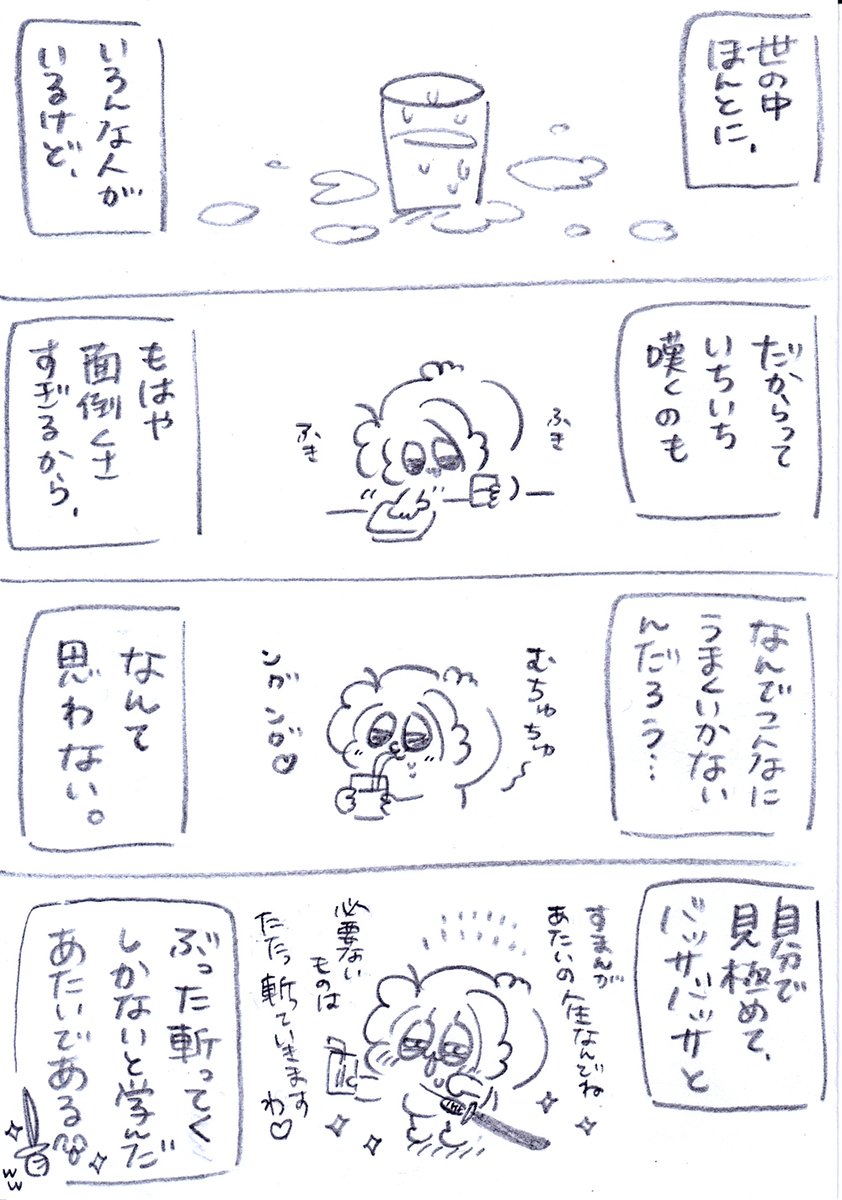 世の中
ほんとに、
いろんな人が
いるけど、
だからって
いちいち
嘆くのも
ふき
ふき
もはや
面倒くさ
すぎるから、
なんでこんなに
うまくいかない
んだろう…
むちゅちゅ
ングング♡
なんて
思わない。
自分で
見極めて、
バッサバッサと
すまんが
あたいの人生なんでね
必要ない
ものは
たたっ斬っていきます
わ♡
ぶった斬ってく
しかないと学んだ
あたいである
ww